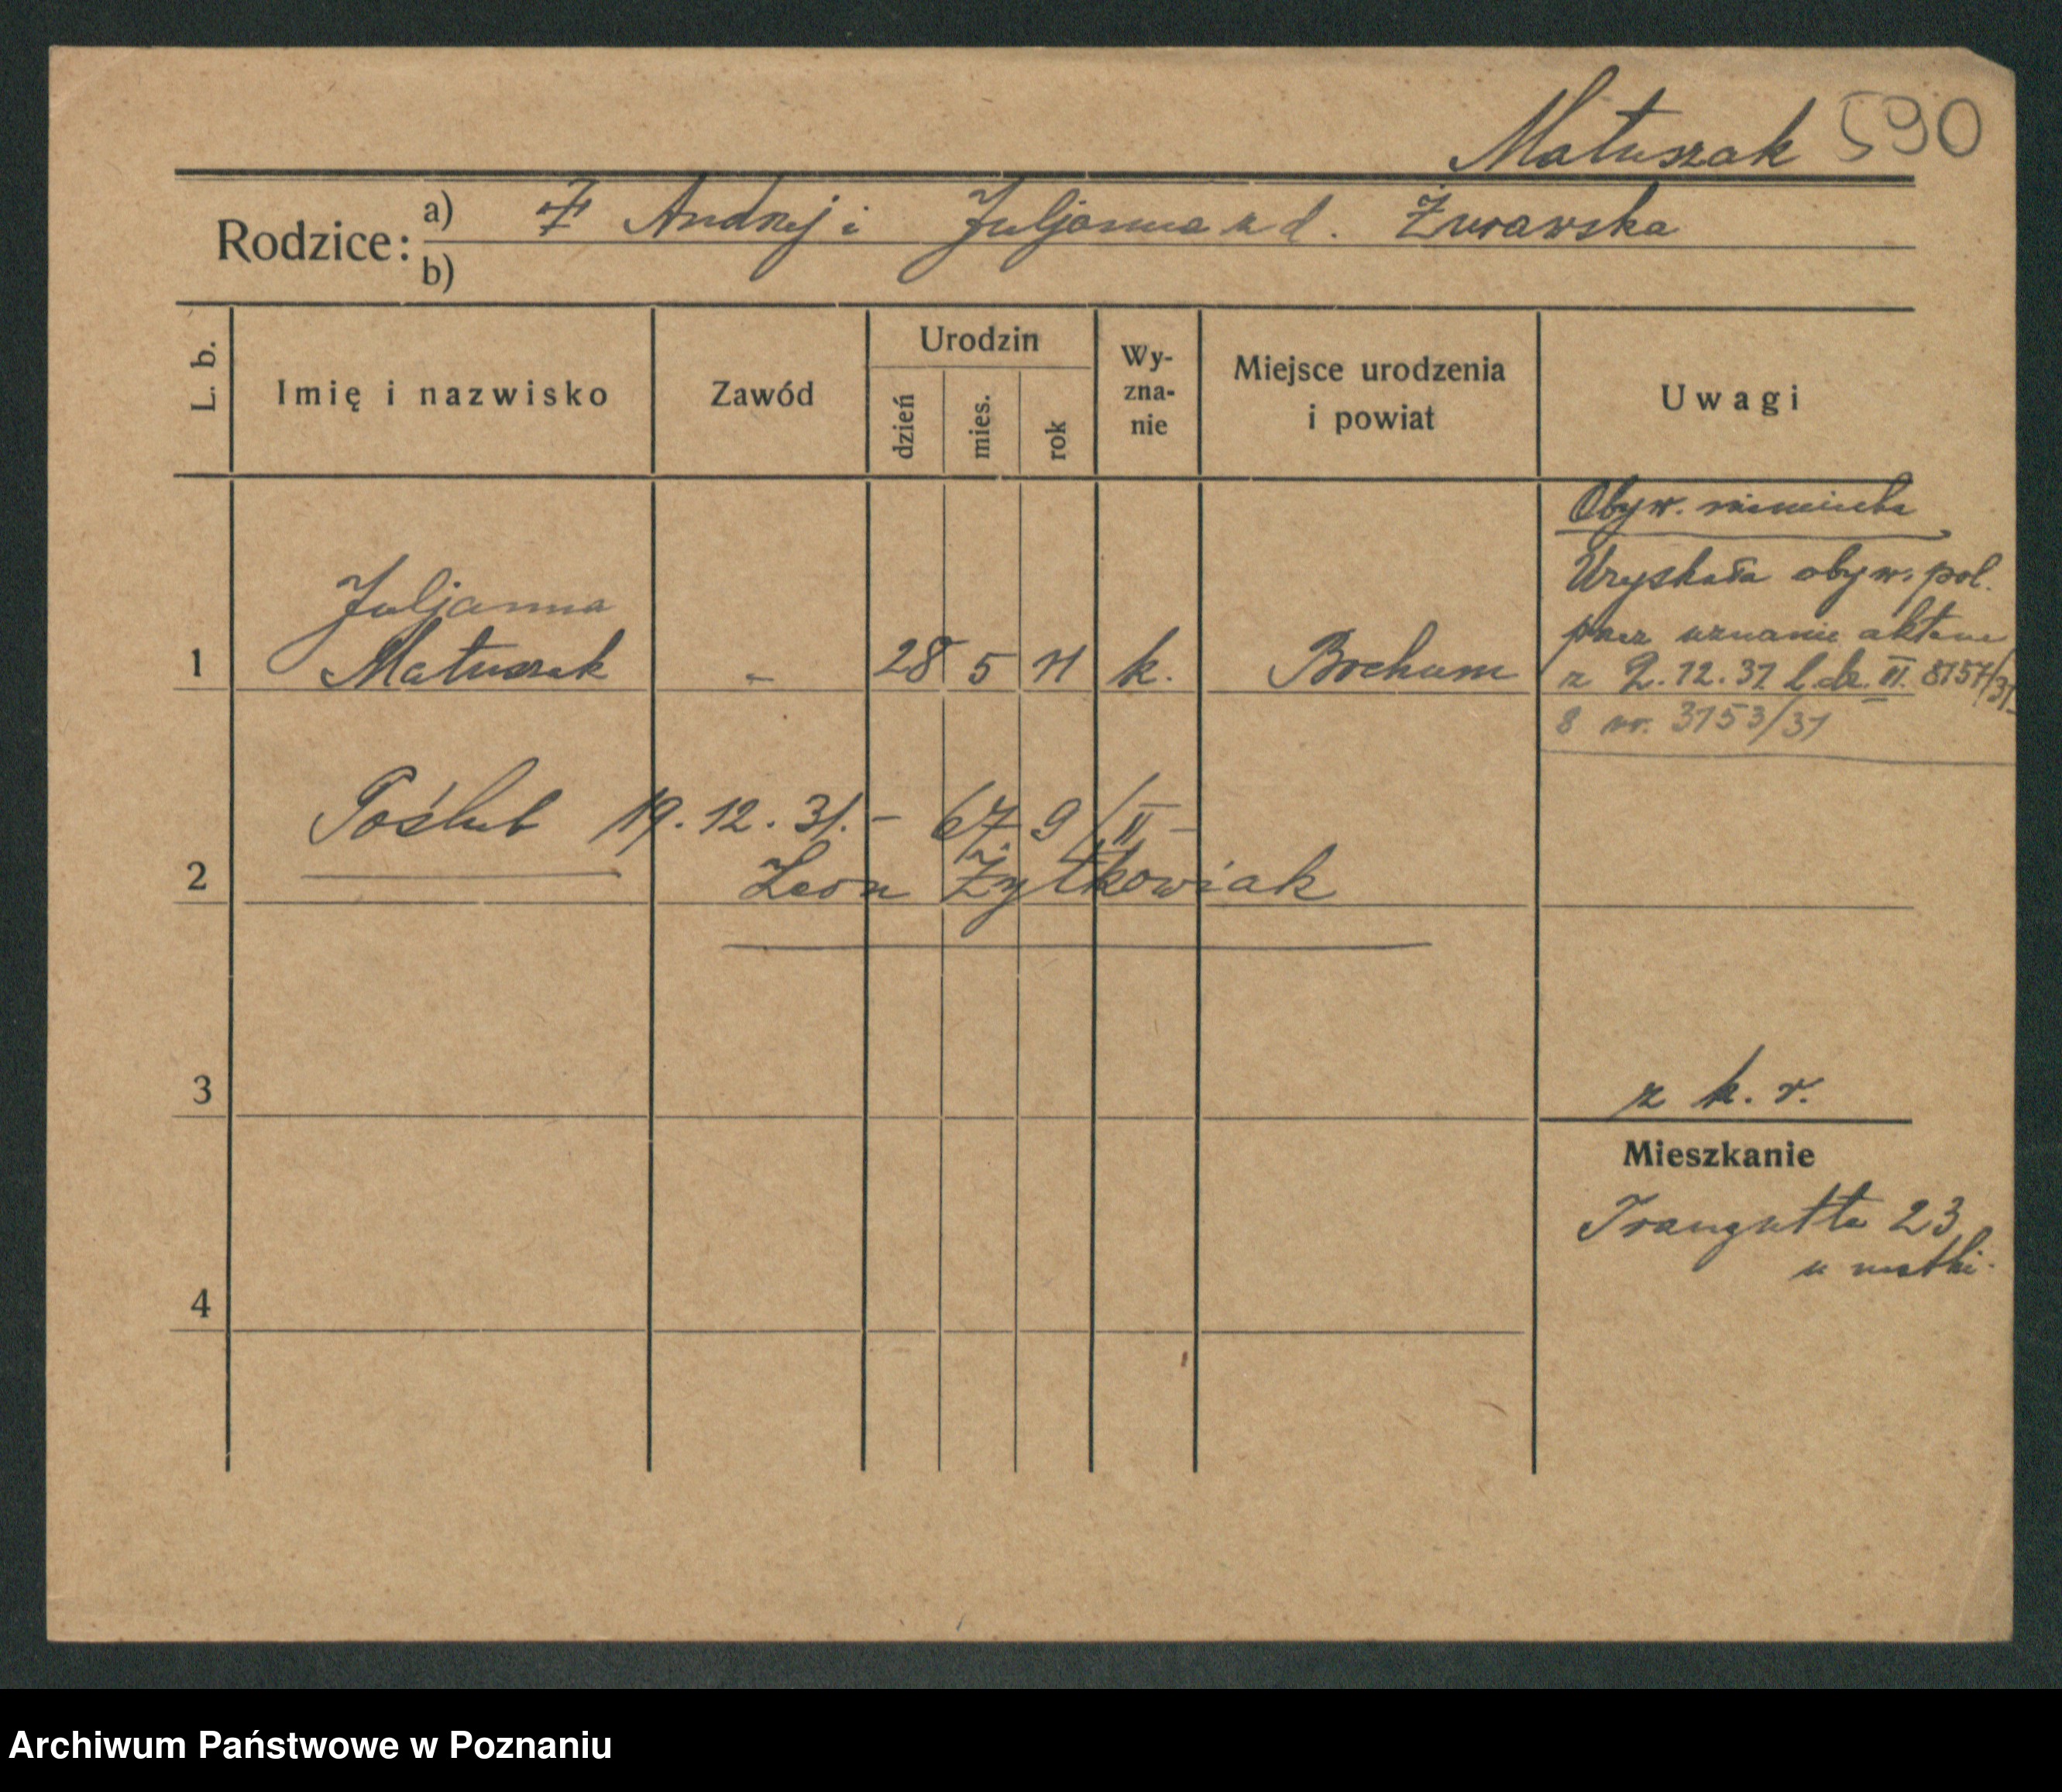 Matuszak 590
Rodzice: a) Andrzej i Juljanna z d. Żurawska
b)
L. b. Imię i nazwisko Zawód Urodzin dzień mies. rok Wy-zna-nie Miejsce urodzenia i powiat Uwagi
Obyw. niemiecka
Uzyskała obyw. pol.
przez uznanie aktem
z 2.12.31 l. dz. II. 8157/31
8 nr. 3153/31
Juljanna
1 Matuszak - 28 5 11 k. Bochum
Poślub 19.12.31. - 67. 9/II -
2 Leon Żytkowiak
3 z k. r.
Mieszkanie
Traugutta 23
u matki.
4
Archiwum Państwowe w Poznaniu